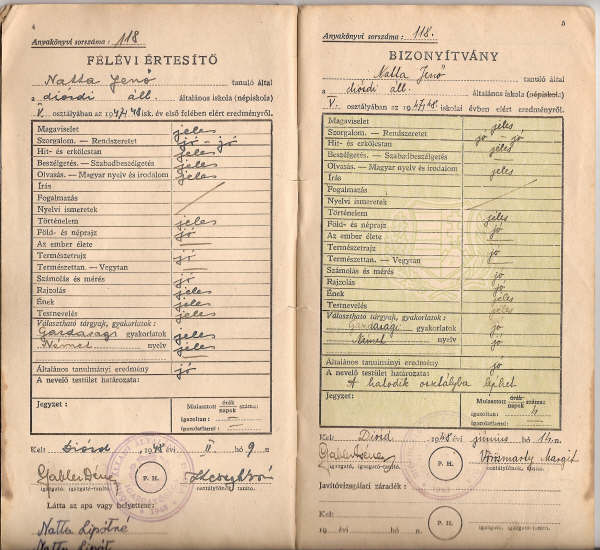 4
Anyakönyvi sorszáma : 118
FÉLÉVI ÉRTESÍTŐ
Natta Jenő tanuló által
a diósdi áll. általános iskola (népiskola)
V. osztályában az 1947/48 isk. év első felében elért eredményről.
Magaviselet jeles
Szorgalom. — Rendszeretet jó – jó
Hit- és erkölcstan jeles
Beszélgetés. — Szabadbeszélgetés jeles
Olvasás. — Magyar nyelv és irodalom jeles
Írás
Fogalmazás
Nyelvi ismeretek
Történelem jeles
Föld- és néprajz jó
Az ember élete —
Természetrajz jó
Természettan. — Vegytan —
Számolás és mérés jó
Rajzolás jeles
Ének jeles
Testnevelés jeles
Választható tárgyak, gyakorlatok :
Gazdasági gyakorlatok jeles
Német nyelv jeles
Általános tanulmányi eredmény jó
A nevelő testület határozata:
Jegyzet :
Mulasztott órák napok száma:
igazoltan:
igazolatlan:
Kelt: Diósd, 1948 évi II hó 9 n
Gábler Dénes
P. H.
igazgató, igazgató-tanító.
osztályfőnök, tanító.
Látta az apa vagy helyettese:
Natta Lipótné
Natta Lipót
5
Anyakönyvi sorszáma : 118.
BIZONYÍTVÁNY
Natta Jenő tanuló által
a diósdi áll. általános iskola (népiskola)
V. osztályában az 1947/48 iskolai évben elért eredményről.
Magaviselet jeles
Szorgalom. — Rendszeretet jó – jó
Hit- és erkölcstan jeles
Beszélgetés. — Szabadbeszélgetés
Olvasás. — Magyar nyelv és irodalom jeles
Írás
Fogalmazás
Nyelvi ismeretek
Történelem jeles
Föld- és néprajz jó
Az ember élete —
Természetrajz jó
Természettan. — Vegytan —
Számolás és mérés jó
Rajzolás jó
Ének jeles
Testnevelés jeles
Választható tárgyak, gyakorlatok :
Gazdasági gyakorlatok jó
Német nyelv jó
Általános tanulmányi eredmény jó
A nevelő testület határozata:
A hatodik osztályba léphet
Jegyzet:
Mulasztott órák napok száma:
igazoltan:
igazolatlan:
Kelt: Diósd, 1948 évi június hó n.
Gábler Dénes
P. H.
Vörösmarty Margit
igazgató, igazgató-tanító.
osztályfőnök, tanító.
Javítóvizsgálati záradék :
Kelt
P. H.
19 évi hó n.
igazgató, igazgató-tanító.